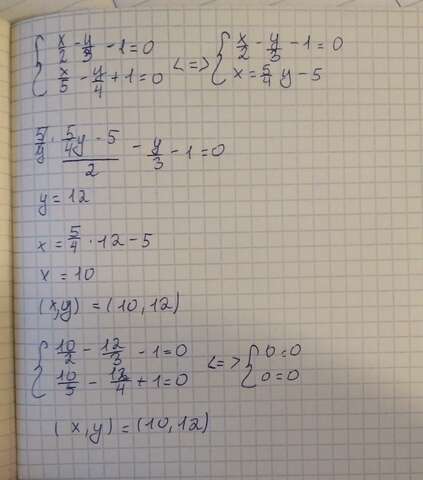 { x/2 - y/3 - 1 = 0 <=> { x/2 - y/3 - 1 = 0
{ x/5 - y/4 + 1 = 0 { x = 5/4 y - 5
(5/4y - 5)/2 - y/3 - 1 = 0
y = 12
x = 5/4 · 12 - 5
x = 10
(x,y) = (10, 12)
{ 10/2 - 12/3 - 1 = 0 <=> { 0 = 0
{ 10/5 - 12/4 + 1 = 0 { 0 = 0
(x, y) = (10, 12)